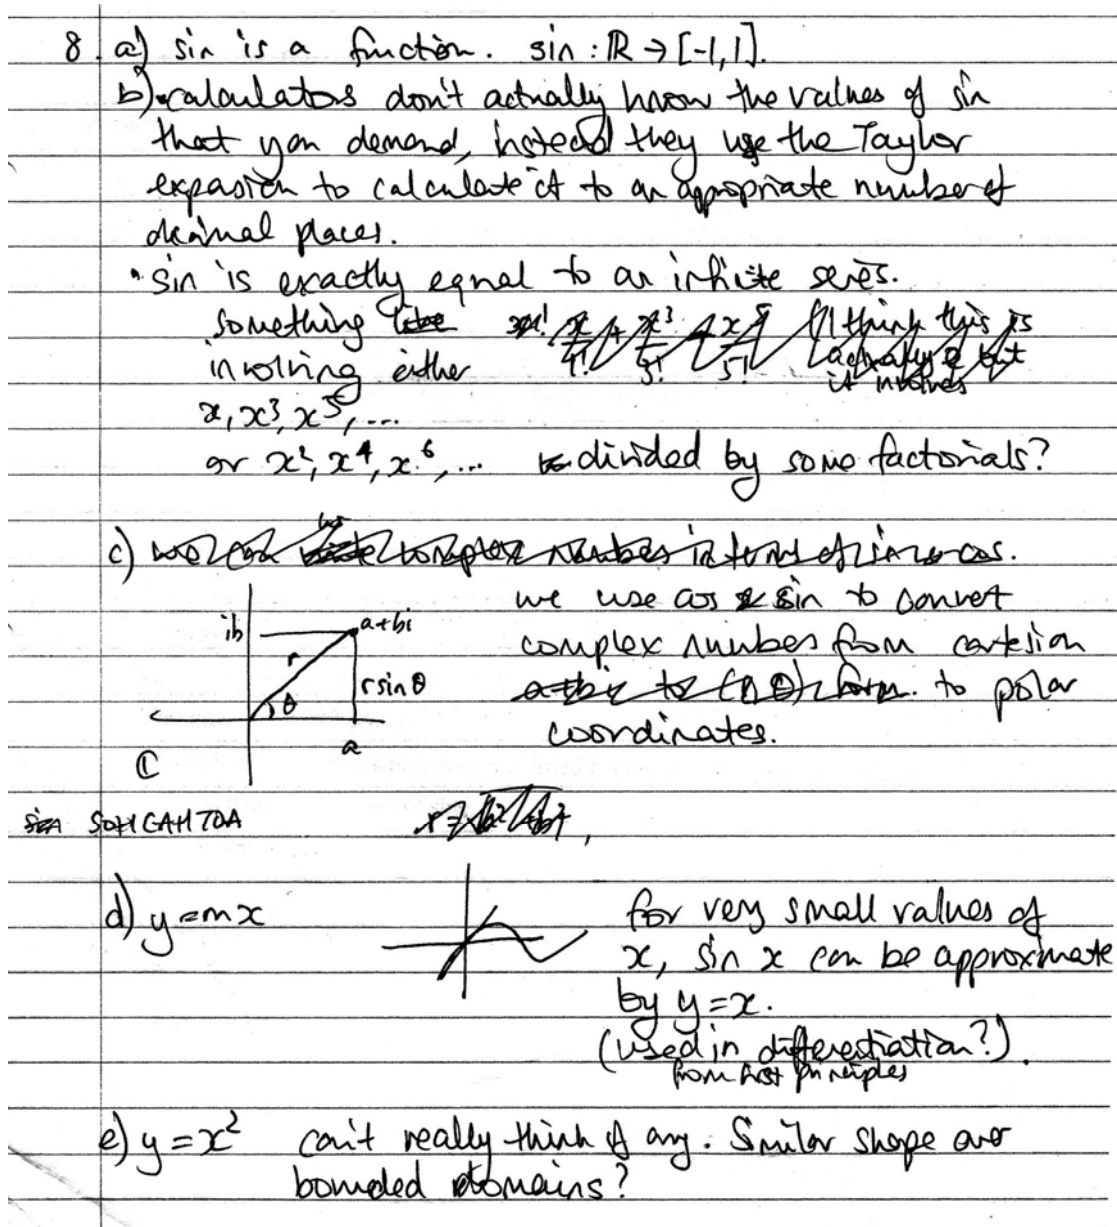 8. a) sin is a function. sin : ℝ → [-1,1].
b) • calculators don't actually know the values of sin
that you demand, instead they use the Taylor
expasion to calculate it to an appropriate number of
decimal places.
• sin is exactly equal to an infinite series.
something like
involving either
x, x³, x⁵, ...
or x², x⁴, x⁶, ... divided by some factorials?
x/1! + x³/3! + x⁵/5! (I think this is
actually e but
it involves
c) we can write complex numbers in terms of sin & cos.
we use cos & sin to convert
complex numbers from cartesian
a+bi to (r, θ) form. to polar
coordinates.
ib
a+bi
r
θ
r sin θ
a
ℂ
sin SOHCAHTOA
d) y=mx
for very small values of
x, sin x can be approximate
by y=x.
(used in differentiation?).
from first principles
e) y=x² can't really think of any. Similar shape over
bounded domains?